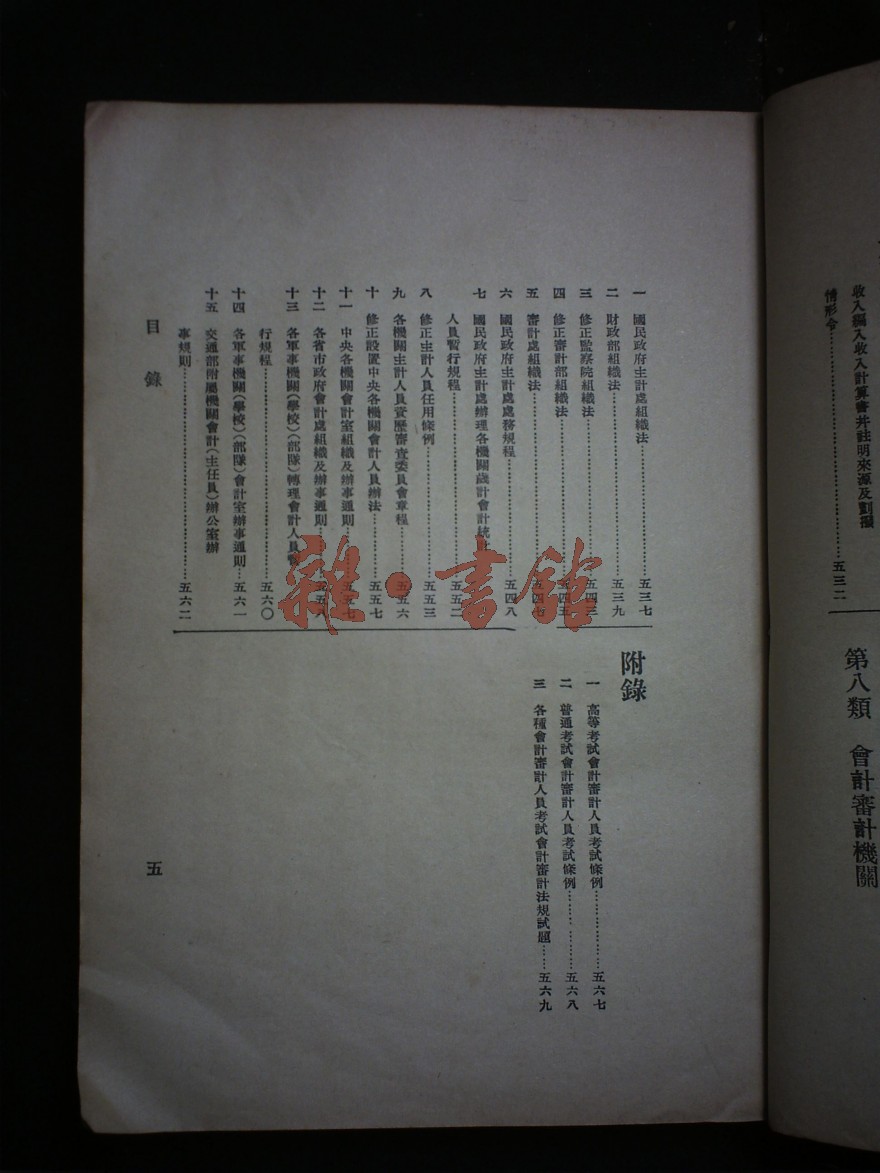 收入編入收入計算書并註明來源及劃撥
情形令……五三二
第八類 會計審計機關
一 國民政府主計處組織法……五三七
二 財政部組織法……五三九
三 修正監察院組織法……五四三
四 修正審計部組織法……五四五
五 審計處組織法……五四七
六 國民政府主計處處務規程……五四八
七 國民政府主計處辦理各機關歲計會計統計
人員暫行規程……五五二
八 修正主計人員任用條例……五五三
九 各機關主計人員資歷審查委員會章程……五五六
十 修正設置中央各機關會計人員辦法……五五七
十一 中央各機關會計室組織及辦事通則……五五七
十二 各省市政府會計處組織及辦事通則……五五八
十三 各軍事機關(學校)(部隊)轉理會計人員暫
行規程……五六〇
十四 各軍事機關(學校)(部隊)會計室辦事通則……五六一
十五 交通部附屬機關會計(主任員)辦公室辦
事規則……五六二
附錄
一 高等考試會計審計人員考試條例……五六七
二 普通考試會計審計人員考試條例……五六八
三 各種會計審計人員考試會計審計法規試題……五六九
目錄
五
雜·書館